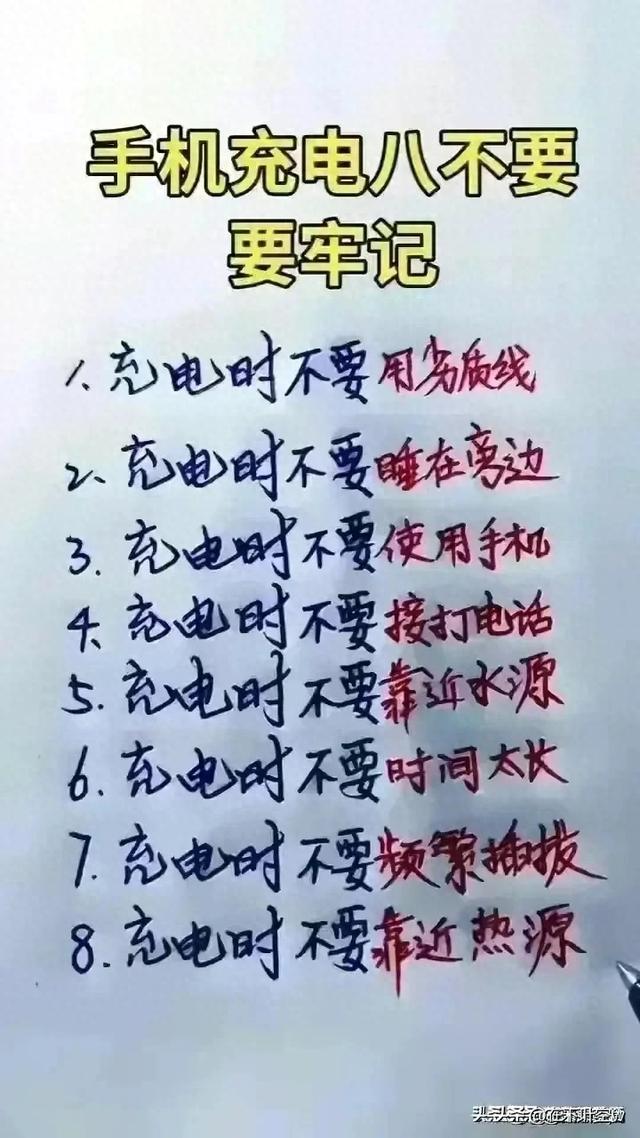 手机充电八不要
要牢记
1、充电时不要用劣质线
2、充电时不要睡在旁边
3、充电时不要使用手机
4、充电时不要接打电话
5、充电时不要靠近水源
6、充电时不要时间太长
7、充电时不要频繁插拔
8、充电时不要靠近热源